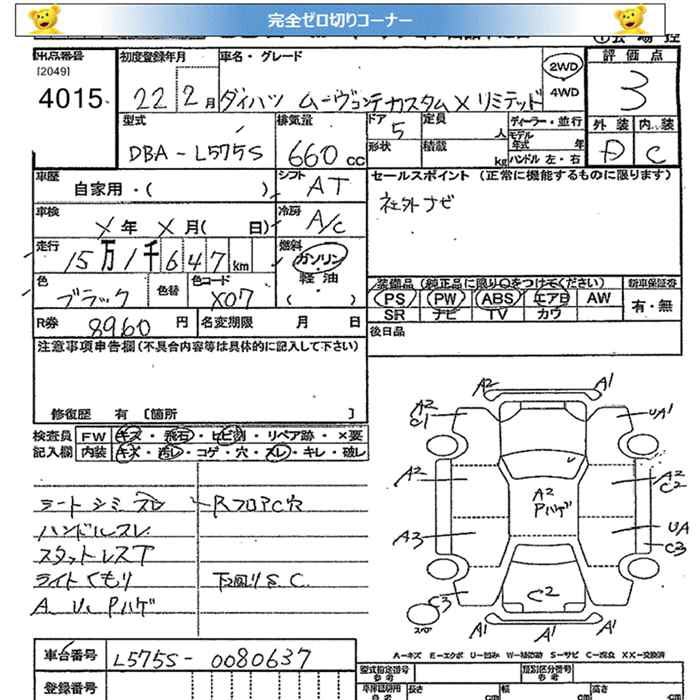 完全ゼロ切りコーナー
出品番号
[2049]
4015
初度登録年月
22 2月
車名・グレード
ダイハツ ムーヴコンテカスタム X リミテッド
2WD
4WD
評価点
3
外装 内装
D C
型式
DBA-L575S
排気量
660 cc
ドア
5
形状
定員
人
積載
kg
ディーラー・並行
モデル年式 年
ハンドル 左・右
車歴
自家用・( )
シフト
AT
セールスポイント (正常に機能するものに限ります)
社外ナビ
車検
X年 X月( 日)
冷房
A/C
走行
15万1千647km
燃料
ガソリン
軽油
( )
色
ブラック
色替
色コード
X07
装備品(純正品に限り○をつけてください)
PS PW ABS エアB AW
SR ナビ TV カワ
新車保証書
有・無
R券
8960円
名変期限 月 日
後日品
注意事項申告欄(不具合内容等は具体的に記入して下さい)
修復歴 有 [箇所 ]
検査員記入欄
FW キズ・飛石・ヒビ割・リペア跡・×要
内装 キズ・汚レ・コゲ・穴・スレ・キレ・破レ
シートシミ スレ
RフロアC穴
ハンドルスレ
スタットレスT
ライトくもり
下廻りS C
A U Pハゲ
A2 A1
A2 C1
UA1
A2
A2 C2
A2 Pハゲ
A3
UA C3
C3
C2
スペア
A1 A1 A1
A=キズ E=エクボ U=凹み W=補修跡 S=サビ C=腐食 XX=交換済
車台番号
L575S-0080637
登録番号
型式指定番号 参考
類別区分番号 参考
長さ cm
幅 cm
高さ cm